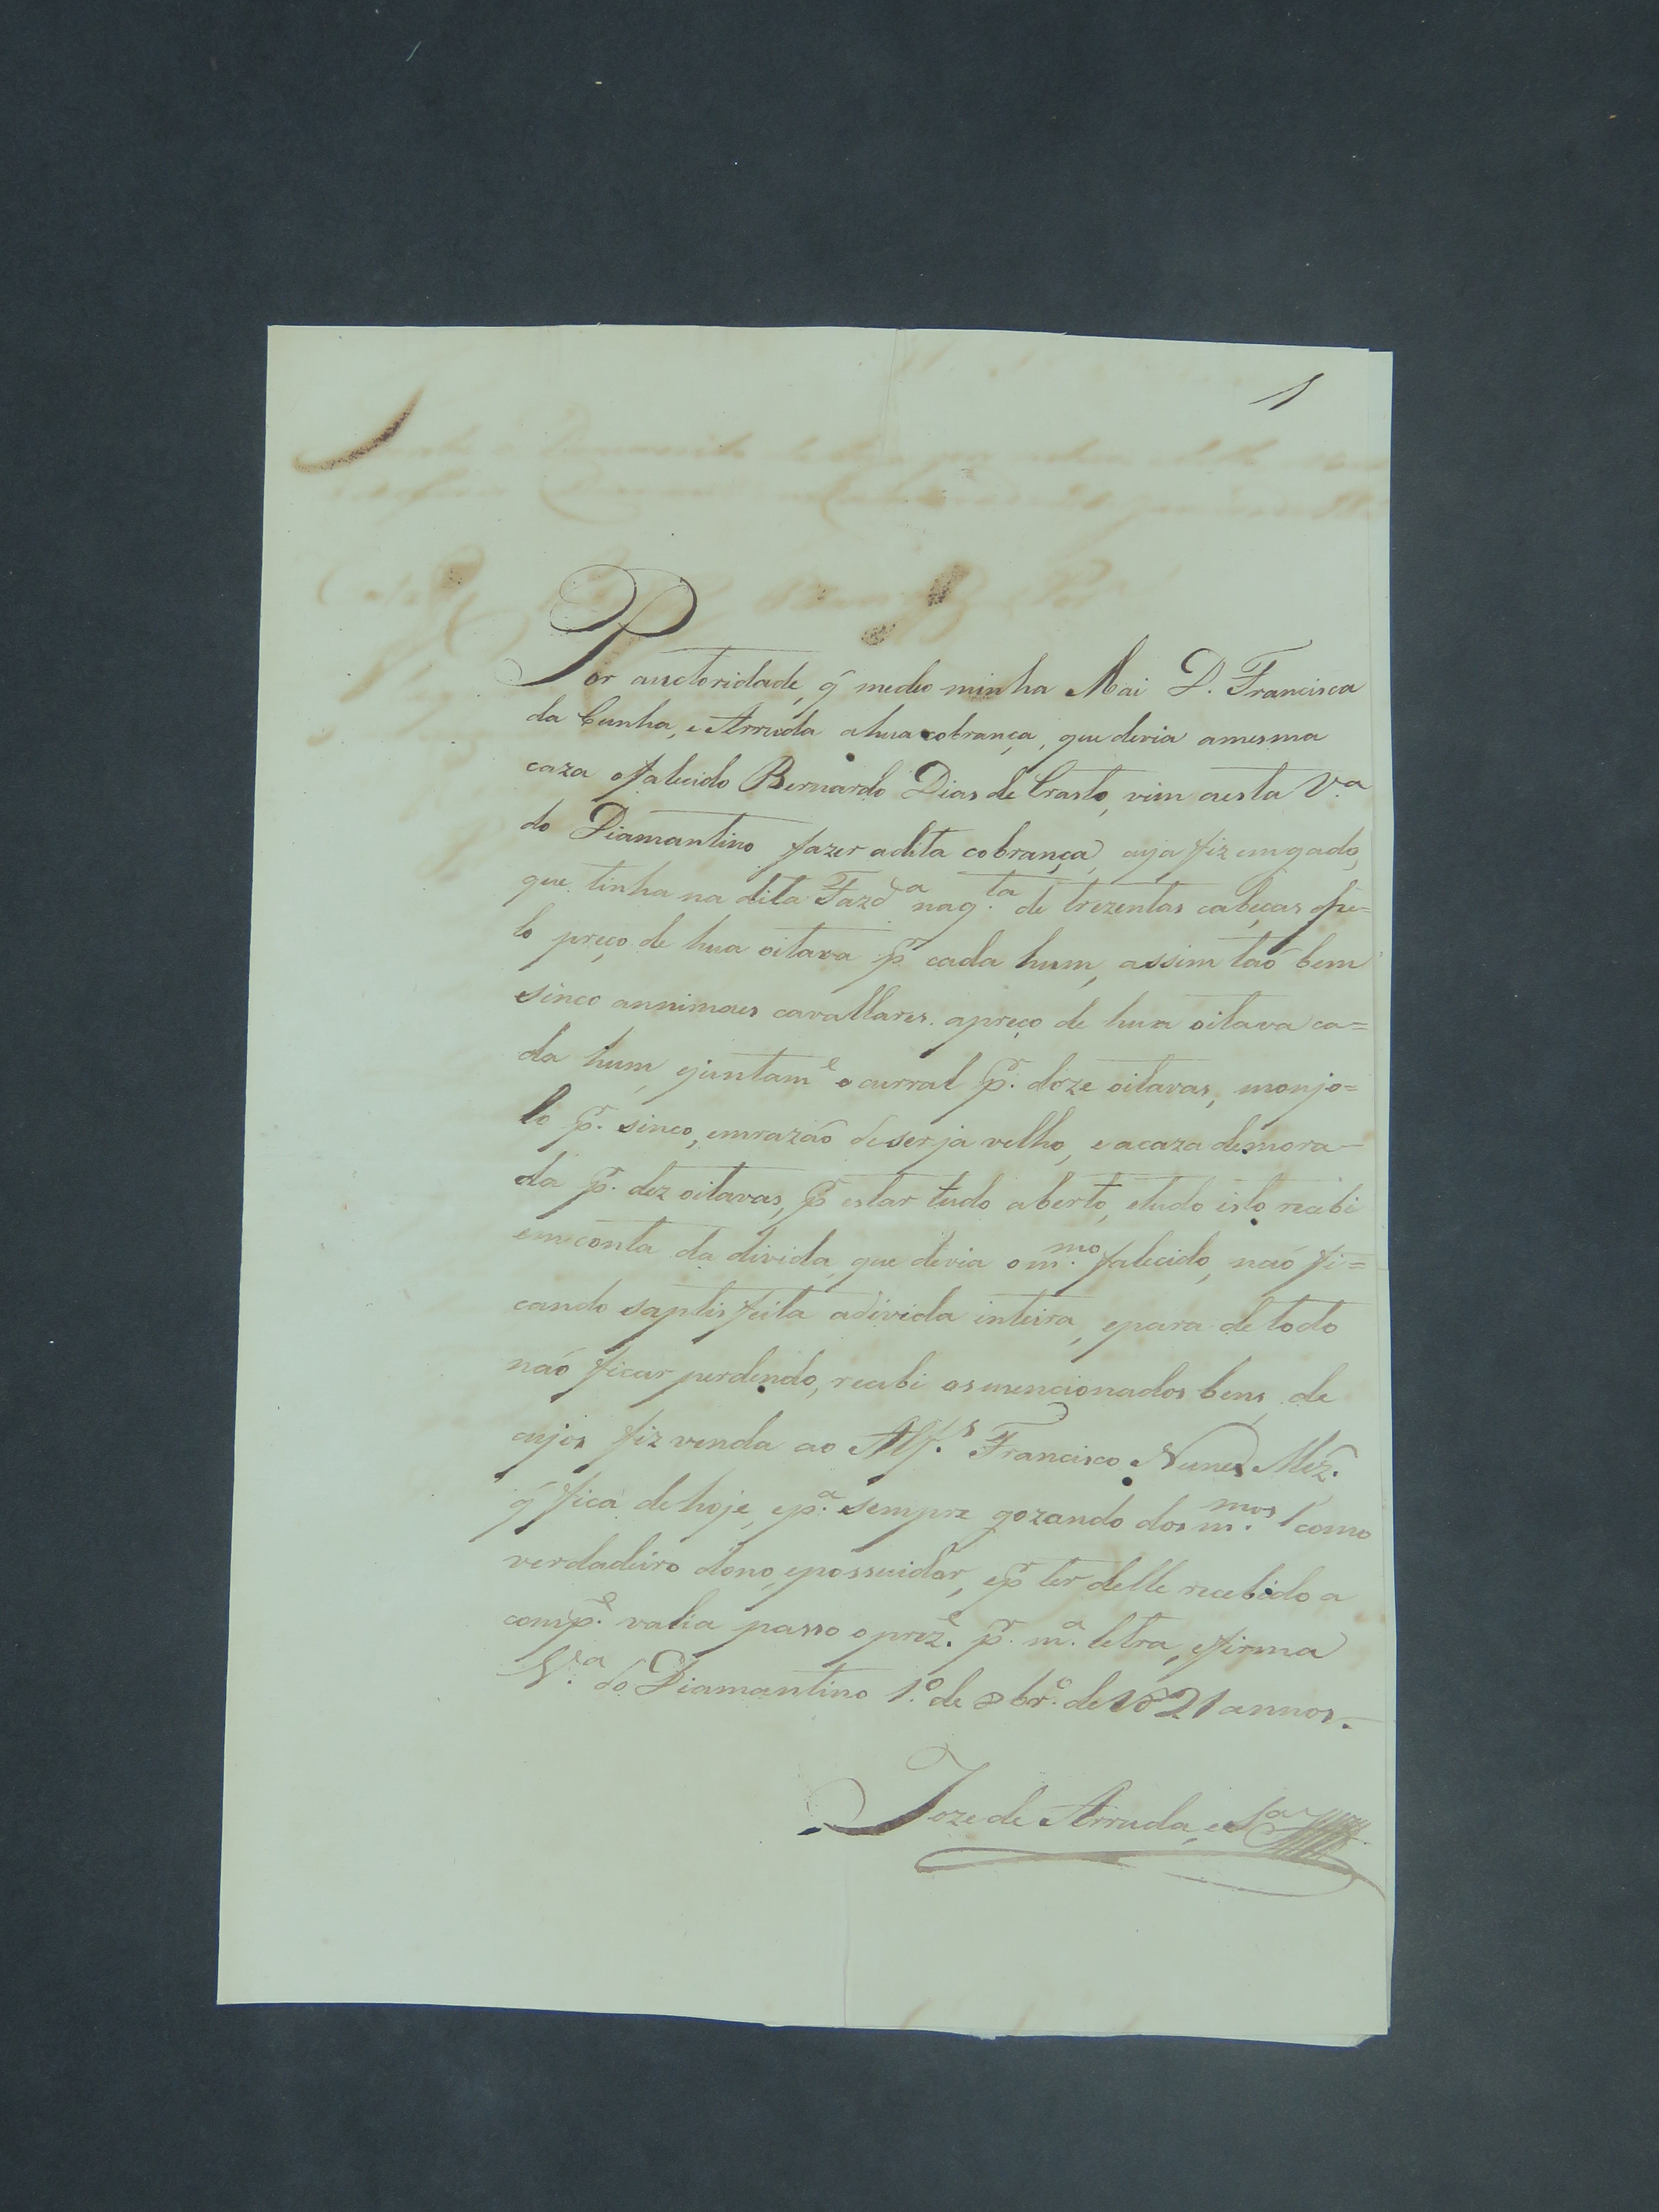 1
Por auctoridade, q̃ medeo minha Mai D. Francisca
da Cunha, e Arruda ahua cobrança, que devia amesma
caza ofalecido Bernardo Dias de Crasto, vim aesta V.ª
do Diamantino fazer adita cobrança, cuja fiz emgado,
que tinha na dita Fazd.ª naq.ta de trezentas cabeças pe=
lo preço de hua oitava p.r cada hum, assim taõ bem
sinco annimaes cavallares apreço de hua oitava ca=
da hum, ejuntam.e o curral p.r doze oitavas, monjo=
lo p.r sinco, emrazaõ deserja velho, e acaza demora-
da p.r dez oitavas, p.r estar tudo aberto, etudo isto recebi
emconta da divida, que devia om.mo falecido, naõ fi=
cando saptisfeita adivida inteira, epara de todo
naõ ficar perdendo, recebi osmencionados bens, de
cujos fiz venda ao Alf.s Francisco Nunes Miz.
q̃ fica dehoje, ep.ª sempre gozando dos m.mos como
verdadeiro dono, epossuidor, ep.r ter delle recebido a
comp.e valia passo oprez.e p.r m.ª letra, efirma
V.ª do Diamantino 1.º de 8br.º de 1821 annos.
Joze de Arruda, e Sá